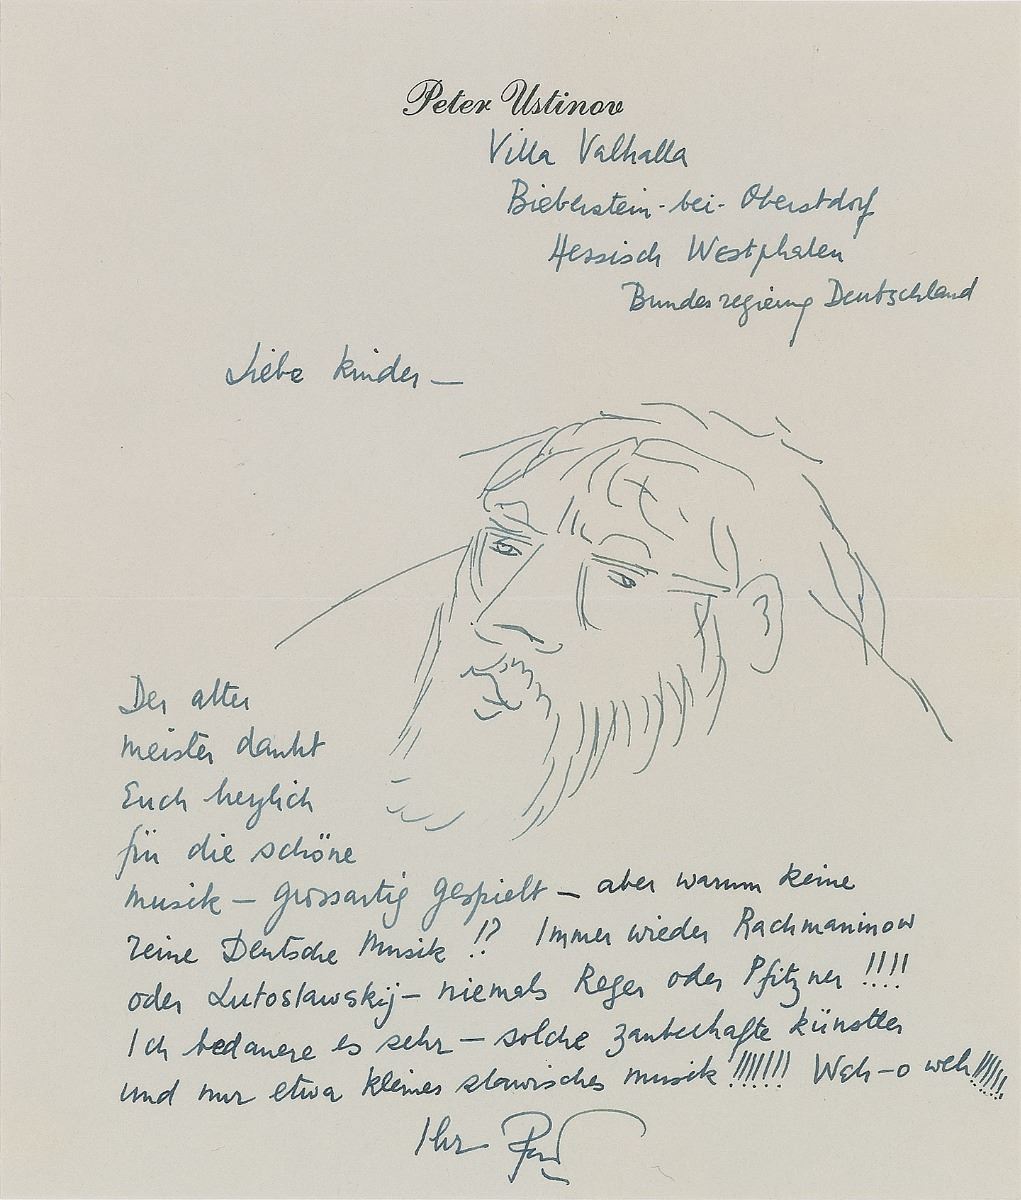 Peter Ustinov
Villa Valhalla
Bieberstein-bei-Oberstdorf
Hessisch Westphalen
Bundesregierung Deutschland
Liebe Kinder —
Der alter
meister dankt
Euch herzlich
für die schöne
musik — grossartig gespielt — aber warum keine
reine Deutsche Musik !? Immer wieder Rachmaninow
oder Lutoslawskij — niemals Reger oder Pfitzner !!!!
Ich bedauere es sehr — solche zauberhafte künstler
und nur etwa kleines slawisches musik !!!!!!! Weh-o weh!!!!!!
Ihr